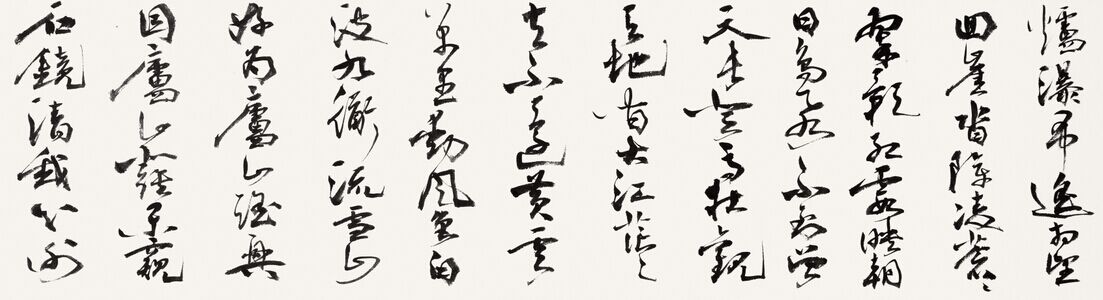 爐瀑布遙相望
回崖沓障凌蒼々
翠影紅霞映朝
日鳥飛不到吳
天長登高壯觀
天地間大江茫々
去不還黃雲
萬里動風色白
波九衜流雪山
好為廬山謠興
因廬山發閑窺
石鏡清我心謝